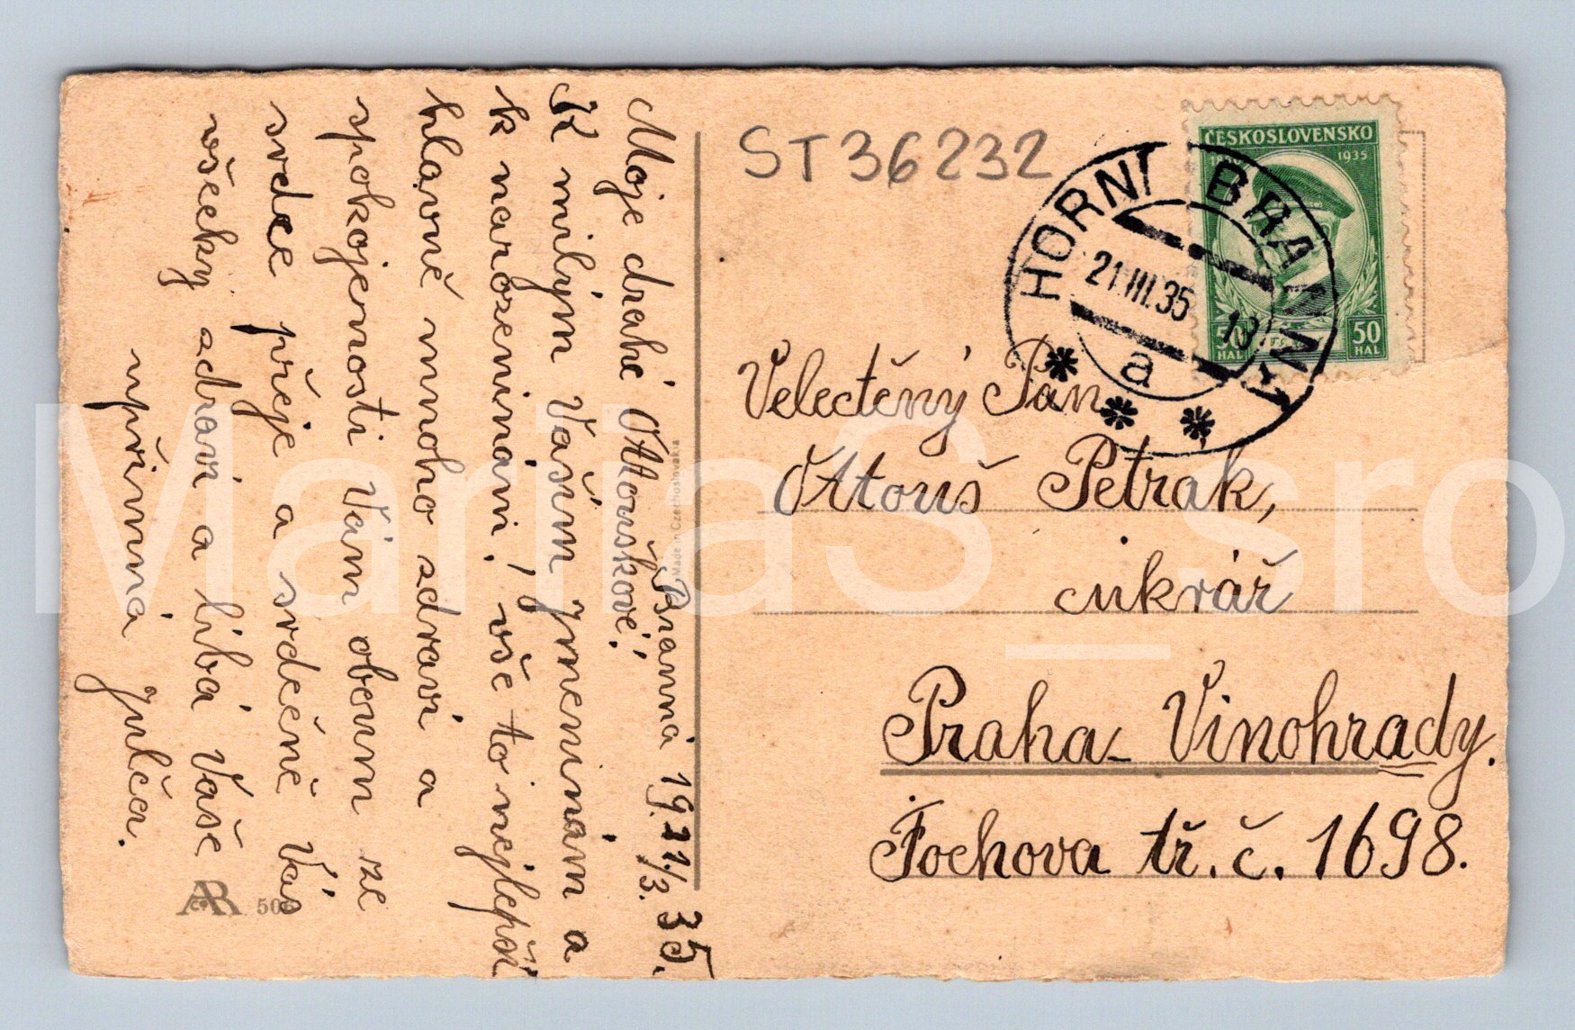 Branná 19 21./3. 35.
Moje drahé Ottouškové!
K milým Vaším jmeninám a
k narozeninám, vše to nejlepší
hlavně mnoho zdraví a
spokojenosti Vám oboum ze
srdce přeje a srdečně Vás
všecky zdraví a líbá Vaše
upřímná Julča.
Made in Czechoslovakia
ARB
50
ST36232
ČESKOSLOVENSKO
1935
50 HAL
50 HAL
HORNÍ BRANNÁ
21.III.35 18
a
Velectěný Pan
Ottouš Petrak,
cukrář
Praha - Vinohrady.
Fochova tř. č. 1698.
MariaS_sro